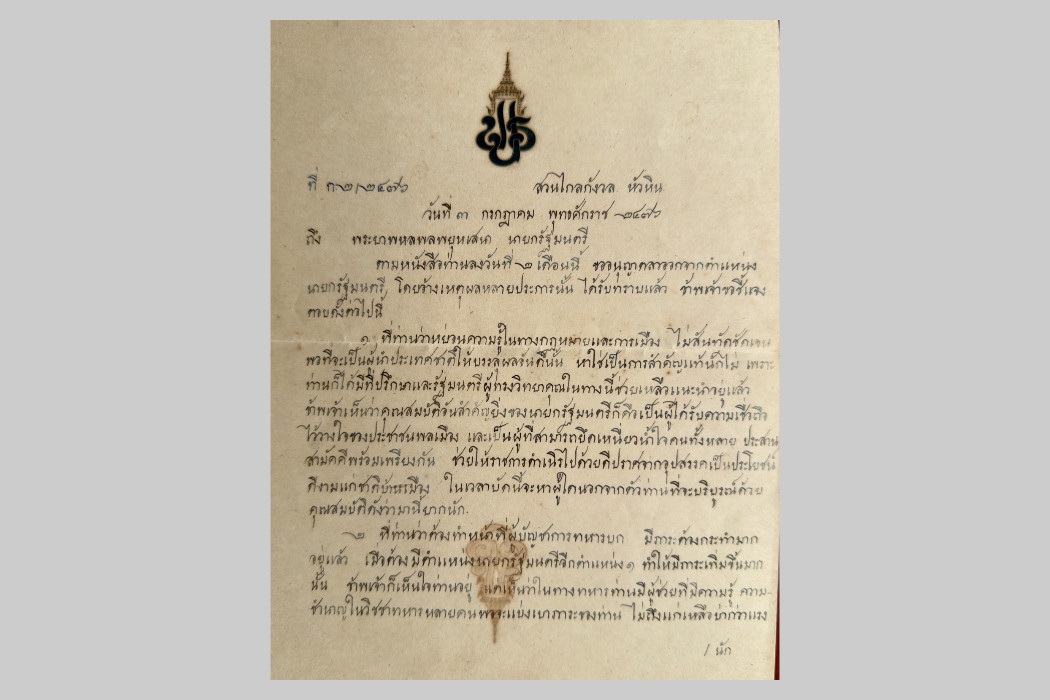 ที่ ก๒/๒๔๗๖ สวนไกลกังวล หัวหิน
วันที่ ๓ กรกฎาคม พุทธศักราช ๒๔๗๖
ถึง พระยาพหลพลพยุหเสนา นายกรัฐมนตรี
ตามหนังสือท่านลงวันที่ ๒ เดือนนี้ ขออนุญาตลาออกจากตำแหน่ง
นายกรัฐมนตรี, โดยอ้างเหตุผลหลายประการนั้น ได้รับทราบแล้ว ข้าพเจ้าขอชี้แจง
ตอบดั่งต่อไปนี้
๑ ที่ท่านว่าหย่อนความรู้ในทางกฎหมายและการเมือง ไม่สันทัดชัดเจน
พอที่จะเป็นผู้นำประเทศชาติให้บรรลุผลอันดีนั้น หาใช่เป็นการสำคัญแท้นักไม่ เพราะ
ท่านก็ได้มีที่ปรึกษาและรัฐมนตรีผู้ทรงวิทยาคุณในทางนี้ช่วยเหลือแนะนำอยู่แล้ว
ข้าพเจ้าเห็นว่าคุณสมบัติอันสำคัญยิ่งของนายกรัฐมนตรีก็คือเป็นผู้ได้รับความเชื่อถือ
ไว้วางใจของประชาชนพลเมือง และเป็นผู้ที่สามารถยึดเหนี่ยวน้ำใจคนทั้งหลาย ประสาน
สามัคคีพร้อมเพรียงกัน ช่วยให้ราชการดำเนิรไปด้วยดีปราศจากอุปสรรคเป็นประโยชน์
ดีงามแก่ชาติบ้านเมือง ในเวลาบัดนี้จะหาผู้ใดนอกจากตัวท่านที่จะบริบูรณ์ด้วย
คุณสมบัติดังว่ามานี้ยากนัก.
๒ ที่ท่านว่าต้องทำหน้าที่ผู้บัญชาการทหารบก มีภาระต้องกระทำมาก
อยู่แล้ว เมื่อต้องมีตำแหน่งนายกรัฐมนตรีอีกตำแหน่ง ๑ ทำให้มีภาระเพิ่มขึ้นมาก
นั้น ข้าพเจ้าก็เห็นใจท่านอยู่ แต่เห็นว่าในทางทหารท่านมีผู้ช่วยที่มีความรู้ ความ-
ชำนาญในวิชชาทหารหลายคนพอจะแบ่งเบาภาระของท่าน ไม่ถึงแก่เหลือบ่ากว่าแรง
/ นัก